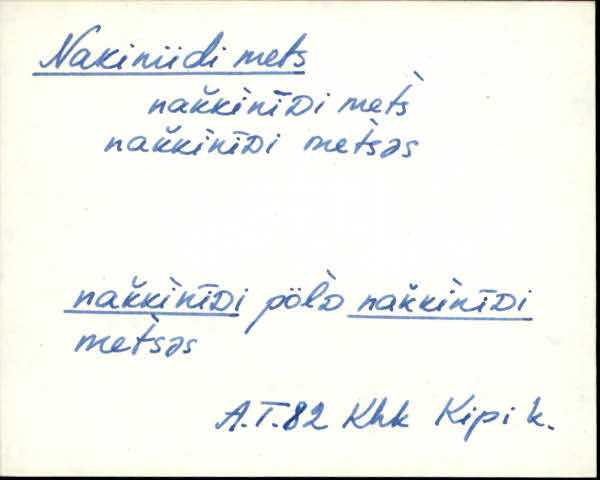 Nakiniidi mets
nak̆kìnīDi met̀s
nak̆kìnīDi met̀sǝs
nak̆kìnīDi pöl̀D nak̆kìnīDi
met̀sǝs
A.T.82 Khk Kipi k.